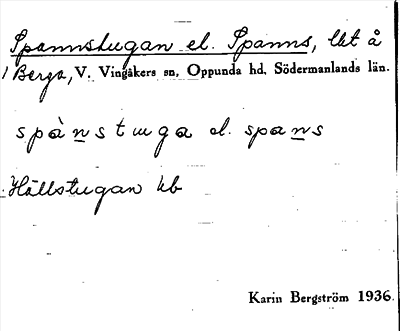 Spannstugan el. Spanns, lkt å
Berga, V. Vingåkers sn, Oppunda hd, Södermanlands län.
spànstuga el. spans
Hällstugan kb
Karin Bergström 1936.